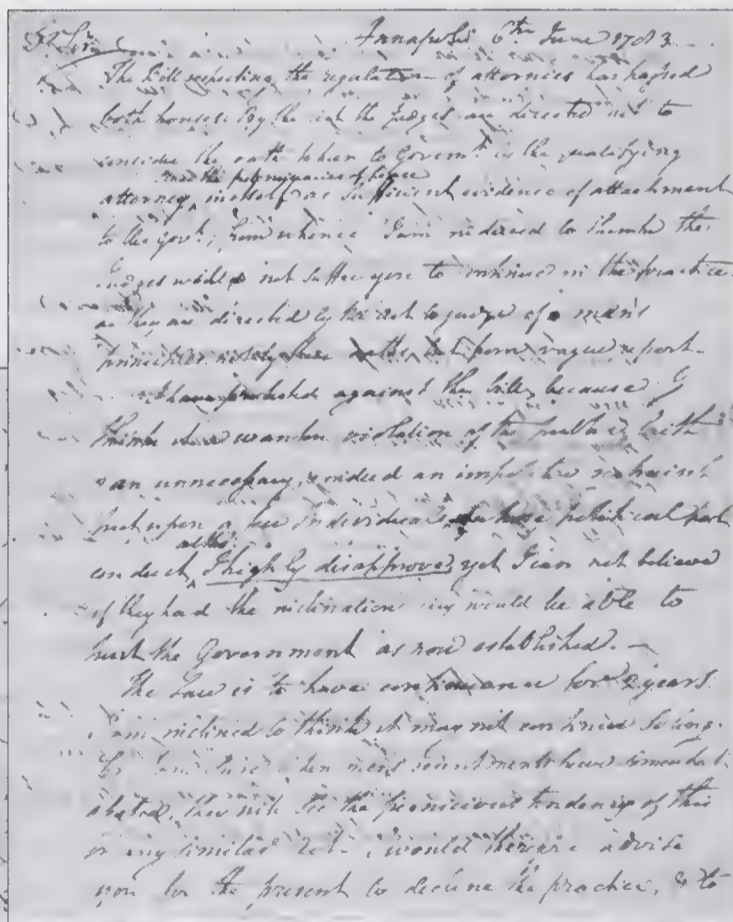 Dr Sir Annapolis 6th June 1783.
The bill respecting the regulation of attornies has passed
both houses. By the act the Judges are directed not to
consider the oath taken to Governt. in the qualifying
attorney, in itself as sufficient evidence of attachment
to the Govt; from whence I am induced to think the
Judges will not suffer you to continue in the practice
as they are directed by the act to judge of a man's
from vague report.
I have protested against this bill, because I
think it a wanton violation of the public faith
& an unnecessary, & indeed an impolitic restraint
put upon a few individuals, whose political past
conduct, altho' I highly disapprove, yet I can not believe
if they had the inclination they would be able to
hurt the Government as now established. —
The Law is to have continuance for 2 years.
I am inclined to think it may not continue so long.
when mens resentments have somewhat
abated, they will see the pernicious tendency of this
or any similar act. I would therefore advise
you for the present to decline the practice, & to